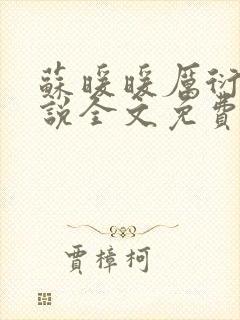 蘇暖暖厲衍
說全文免費
賈樟柯